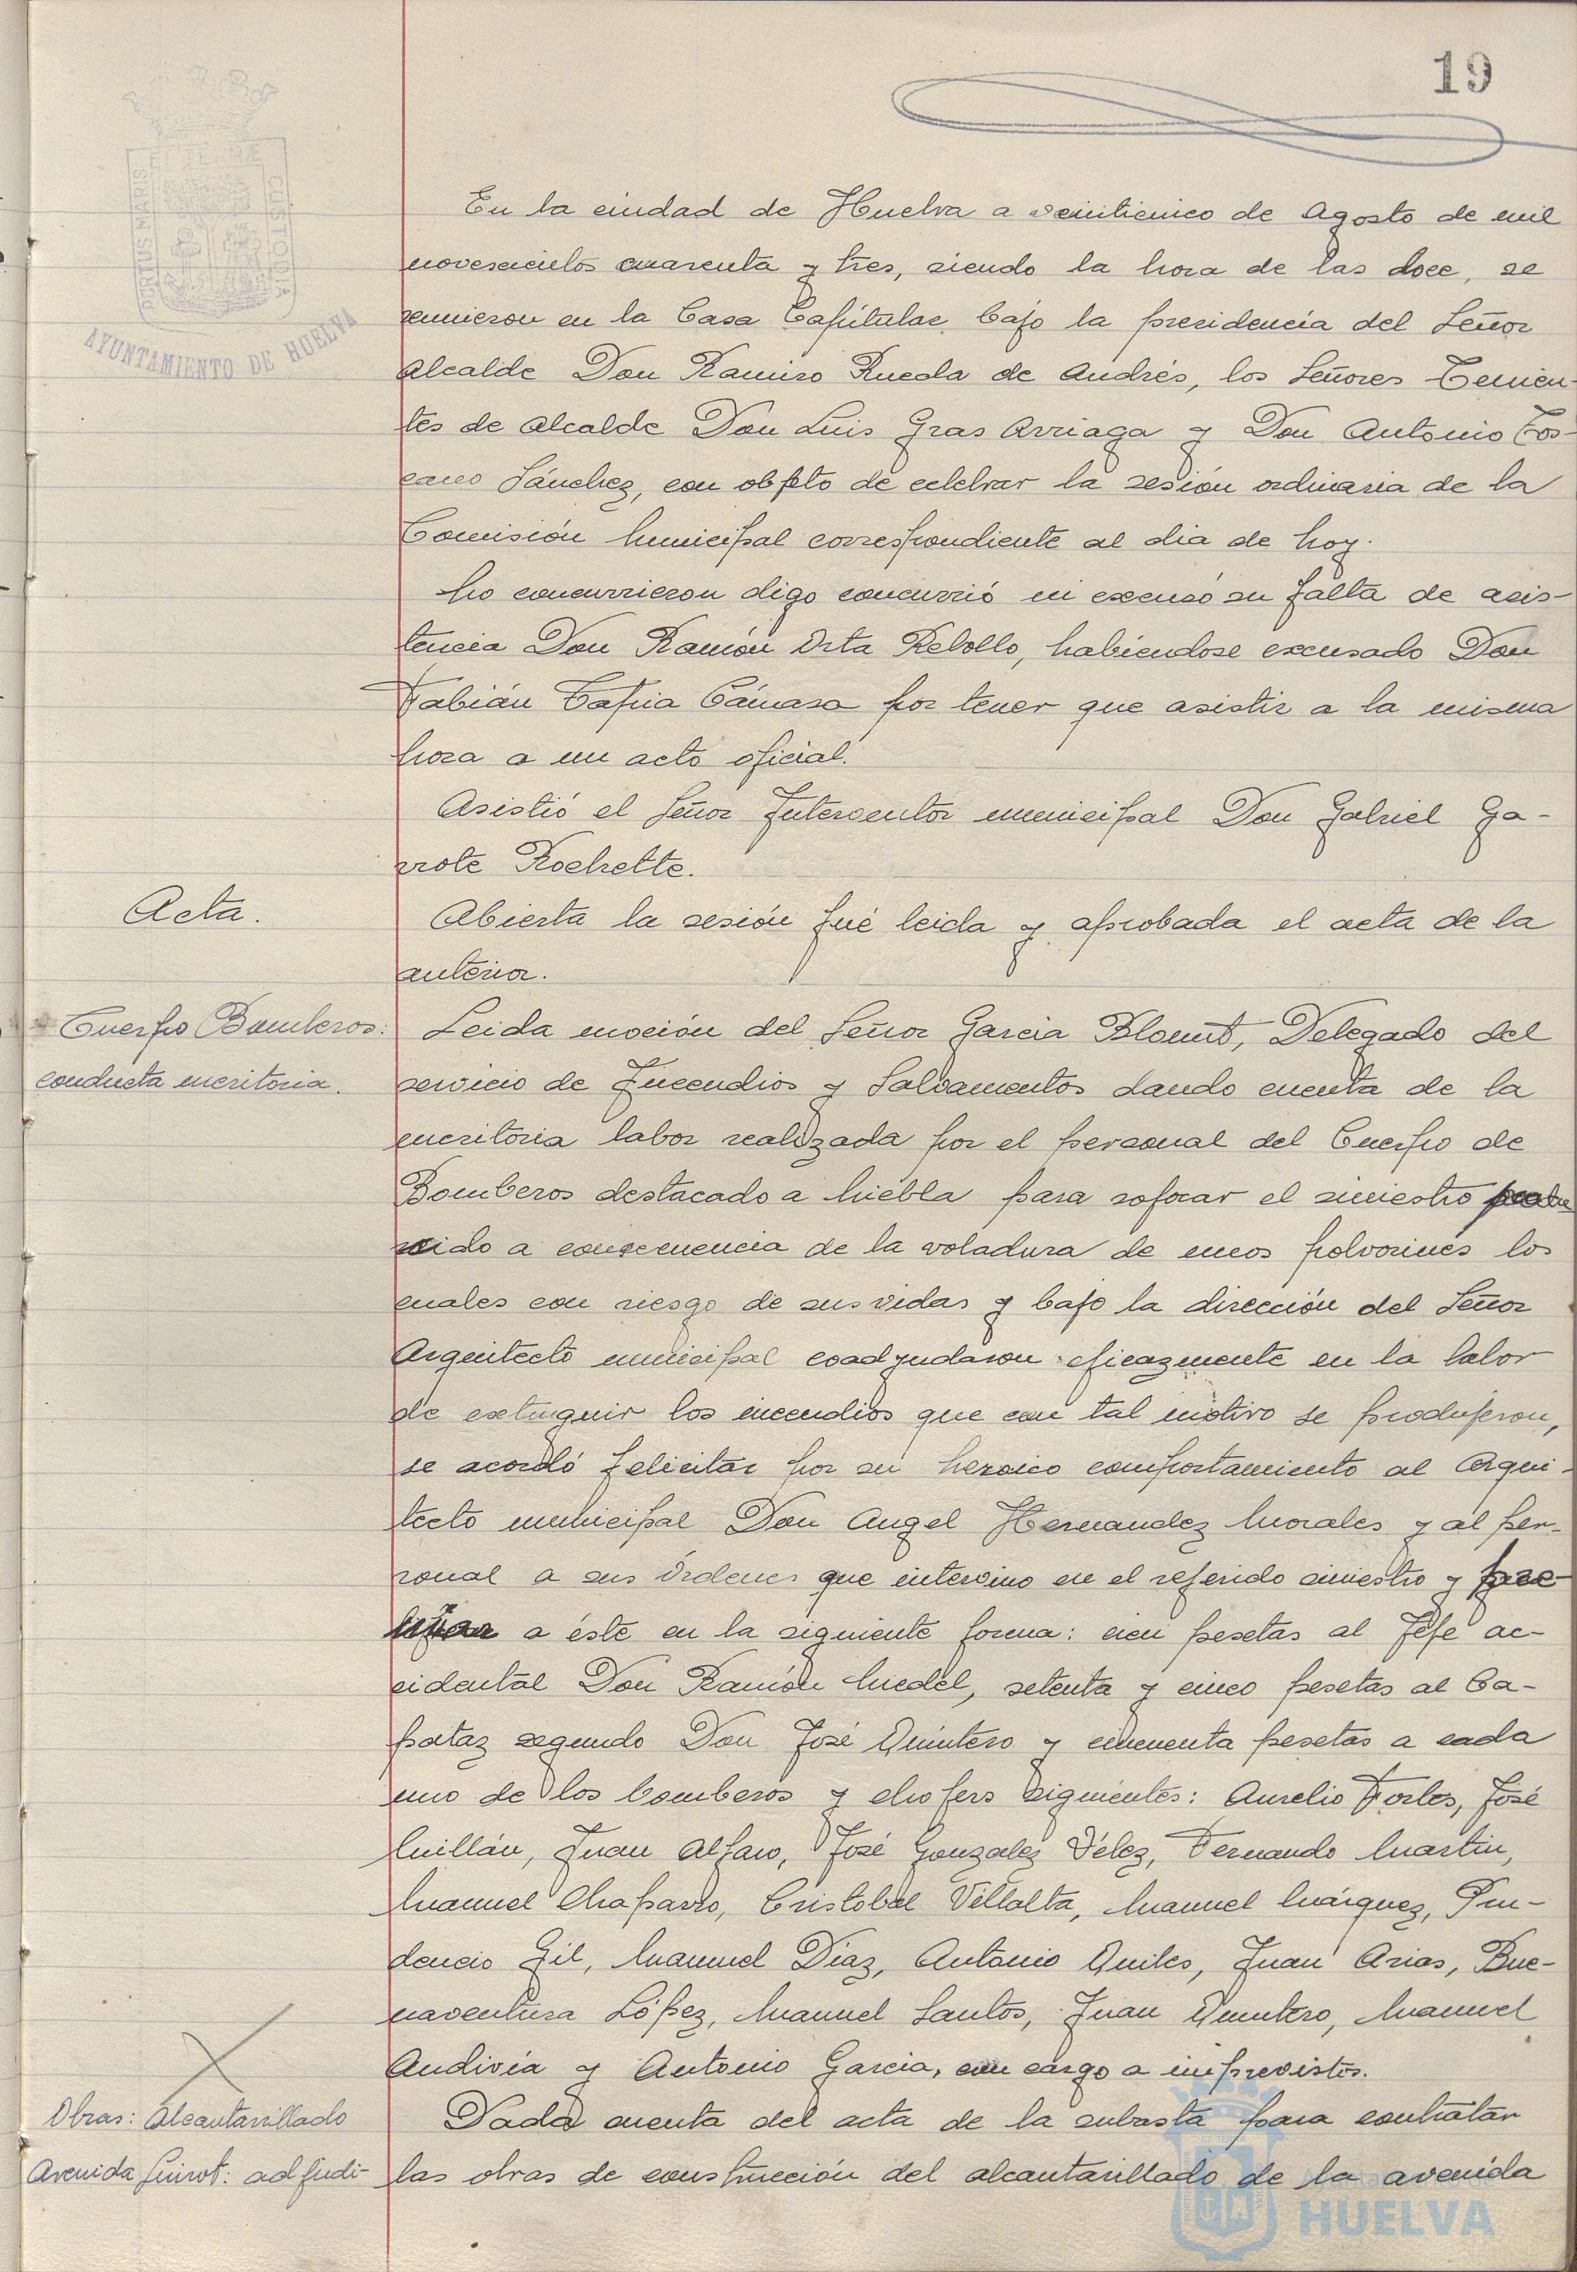 19
PORTUS MARIS ET TERRAE CUSTODIA
AYUNTAMIENTO DE HUELVA
En la ciudad de Huelva a veinticinco de Agosto de mil
novescientos cuarenta y tres, siendo la hora de las doce, se
reunieron en la Casa Capitular bajo la presidencia del Señor
Alcalde Don Ramiro Rueda de Andrés, los Señores Tenien-
tes de Alcalde Don Luis Gras Arriaga y Don Antonio Tos-
cano Sánchez, con objeto de celebrar la sesión ordinaria de la
Comisión Municipal correspondiente al dia de hoy.
No concurrieron digo concurrió ni excusó su falta de asis-
tencia Don Ramón Orta Rebollo, habiendose excusado Don
Fabián Tapia Cámara por tener que asistir a la misma
hora a un acto oficial.
Asistió el Señor Interventor municipal Don Gabriel Ga-
rrote Rochette.
Acta.
Abierta la sesión fué leida y aprobada el acta de la
anterior.
Cuerpo Bomberos:
conducta meritoria.
Leida moción del Señor Garcia Blount, Delegado del
servicio de Incendios y Salvamentos dando cuenta de la
meritoria labor realizada por el personal del Cuerpo de
Bomberos destacado a Niebla para sofocar el siniestro produ
cido a consecuencia de la voladura de unos polvorines los
cuales con riesgo de sus vidas y bajo la dirección del Señor
Arquitecto municipal coadyudaron eficazmente en la labor
de extinguir los incendios que con tal motivo se produjeron,
se acordó felicitar por su heroico comportamiento al Arqui-
tecto municipal Don Angel Hernandez Morales y al per-
sonal a sus órdenes que intervino en el referido siniestro y pre-
miar a éste en la siguiente forma: cien pesetas al Jefe ac-
cidental Don Ramón Medel, setenta y cinco pesetas al Ca-
pataz segundo Don José Quintero y cincuenta pesetas a cada
uno de los bomberos y chofers siguientes: Aurelio Fortes, José
Millán, Juan Alfaro, José Gonzalez Vélez, Fernando Martin,
Manuel Chaparro, Cristobal Villalta, Manuel Márquez, Pru-
dencio Gil, Manuel Diaz, Antonio Quiles, Juan Arias, Bue-
naventura López, Manuel Santos, Juan Quintero, Manuel
Andivia y Antonio Garcia, con cargo a imprevistos.
Obras: Alcantarillado
Avenida Guirot: adjudi-
Dada cuenta del acta de la subasta para contratar
las obras de construcción del alcantarillado de la avenida
Ayuntamiento de
HUELVA